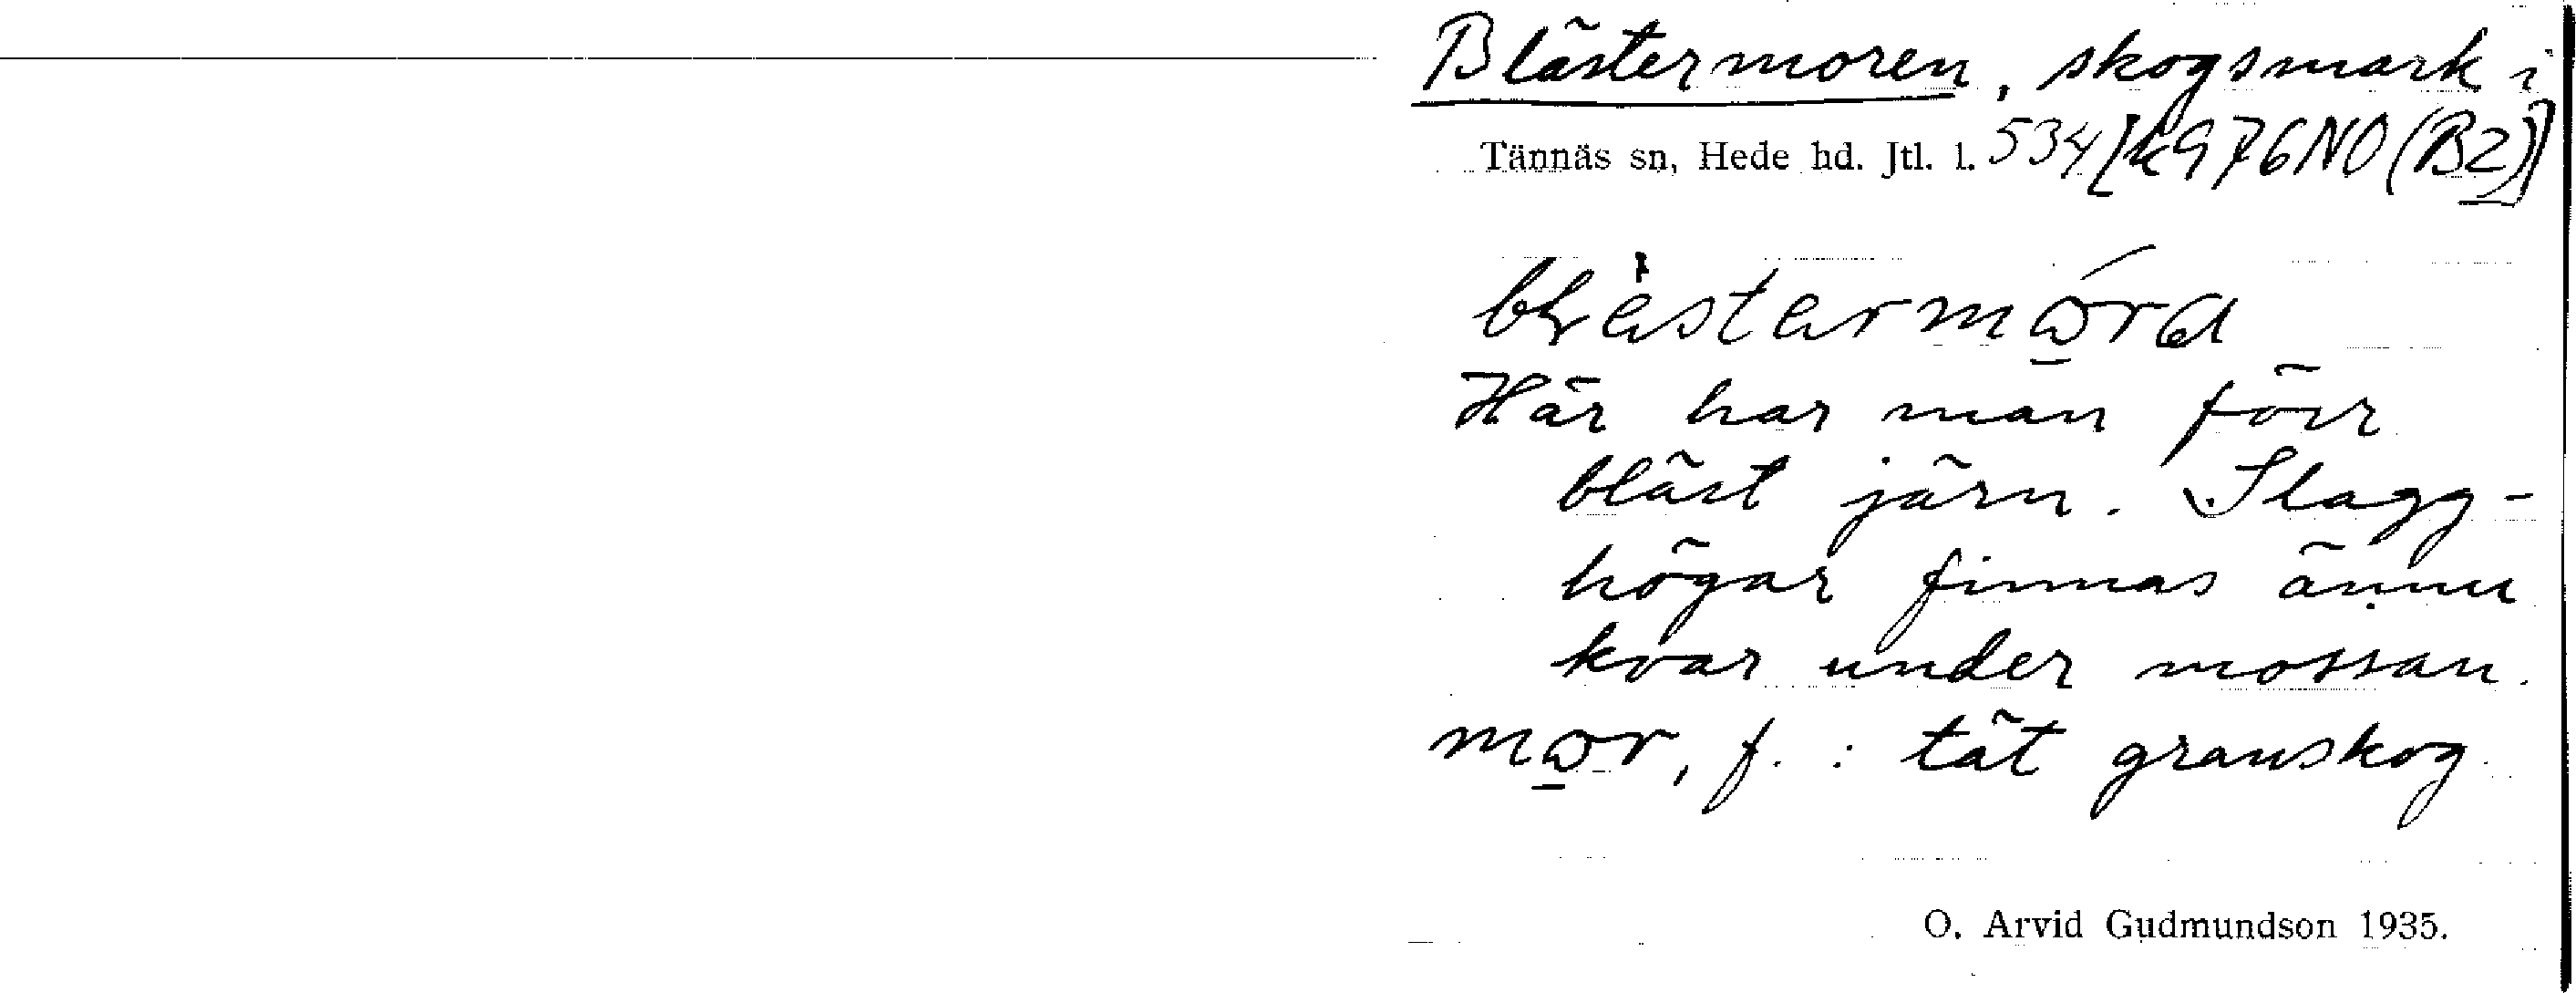 Blästermoren, skogsmark i
Tännäs sn, Hede hd. Jtl. l. 534 [k976NO(B2)]
Här har man förr
bläst järn. Slagg-
högar finnas ännu
kvar under mossan.
mor, f. : tät granskog
O. Arvid Gudmundson 1935.